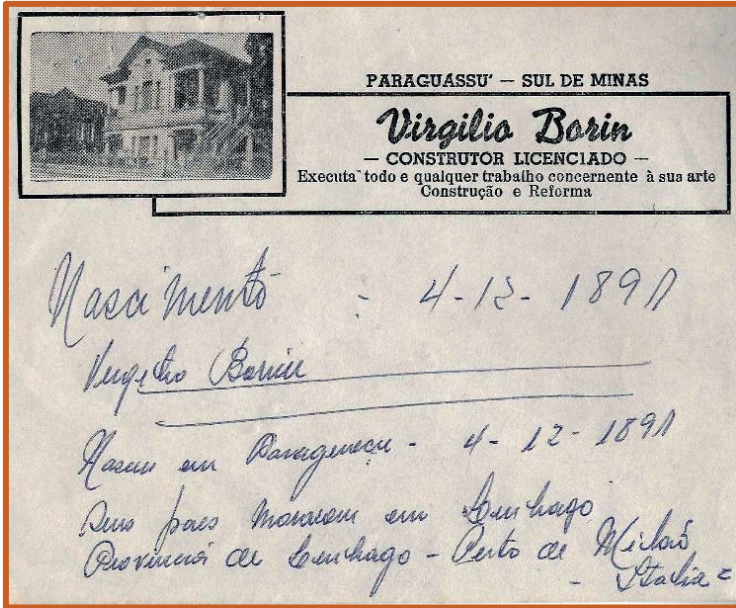 PARAGUASSU' — SUL DE MINAS
Virgilio Borin
— CONSTRUTOR LICENCIADO —
Executa todo e qualquer trabalho concernente à sua arte
Construção e Reforma
Nascimento : 4-12-1891
Virgilio Borin
Nasceu em Paraguaçu - 4-12-1891
Seus paes moravam em
Provincia de - Perto de Milão
- Italia =